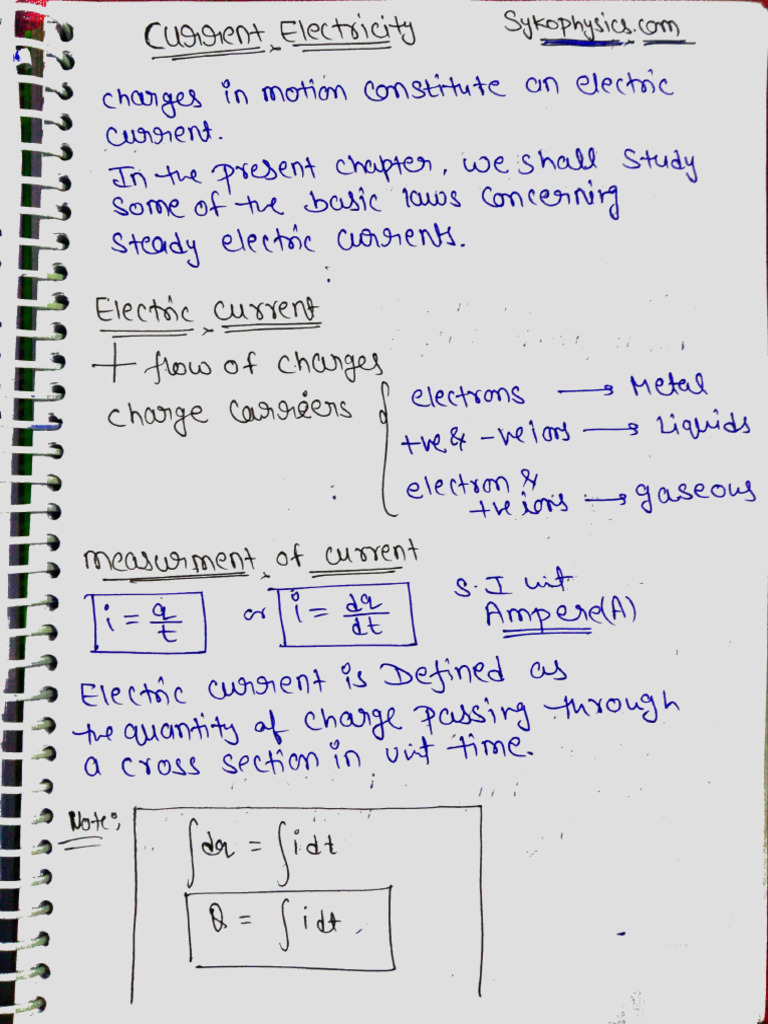 Current Electricity
Sykophysics.com
charges in motion constitute an electric
current.
In the present chapter, we shall study
some of the basic laws concerning
steady electric currents.
Electric current
flow of charges
charge carriers { electrons → Metal
+ve & -ve ions → Liquids
electron &
+ve ions → gaseous
measurment of current
i = q/t or i = dq/dt
S.I unit
Ampere(A)
Electric current is Defined as
the quantity of charge passing through
a cross section in unit time.
Note:
∫dq = ∫i dt
Q = ∫i dt